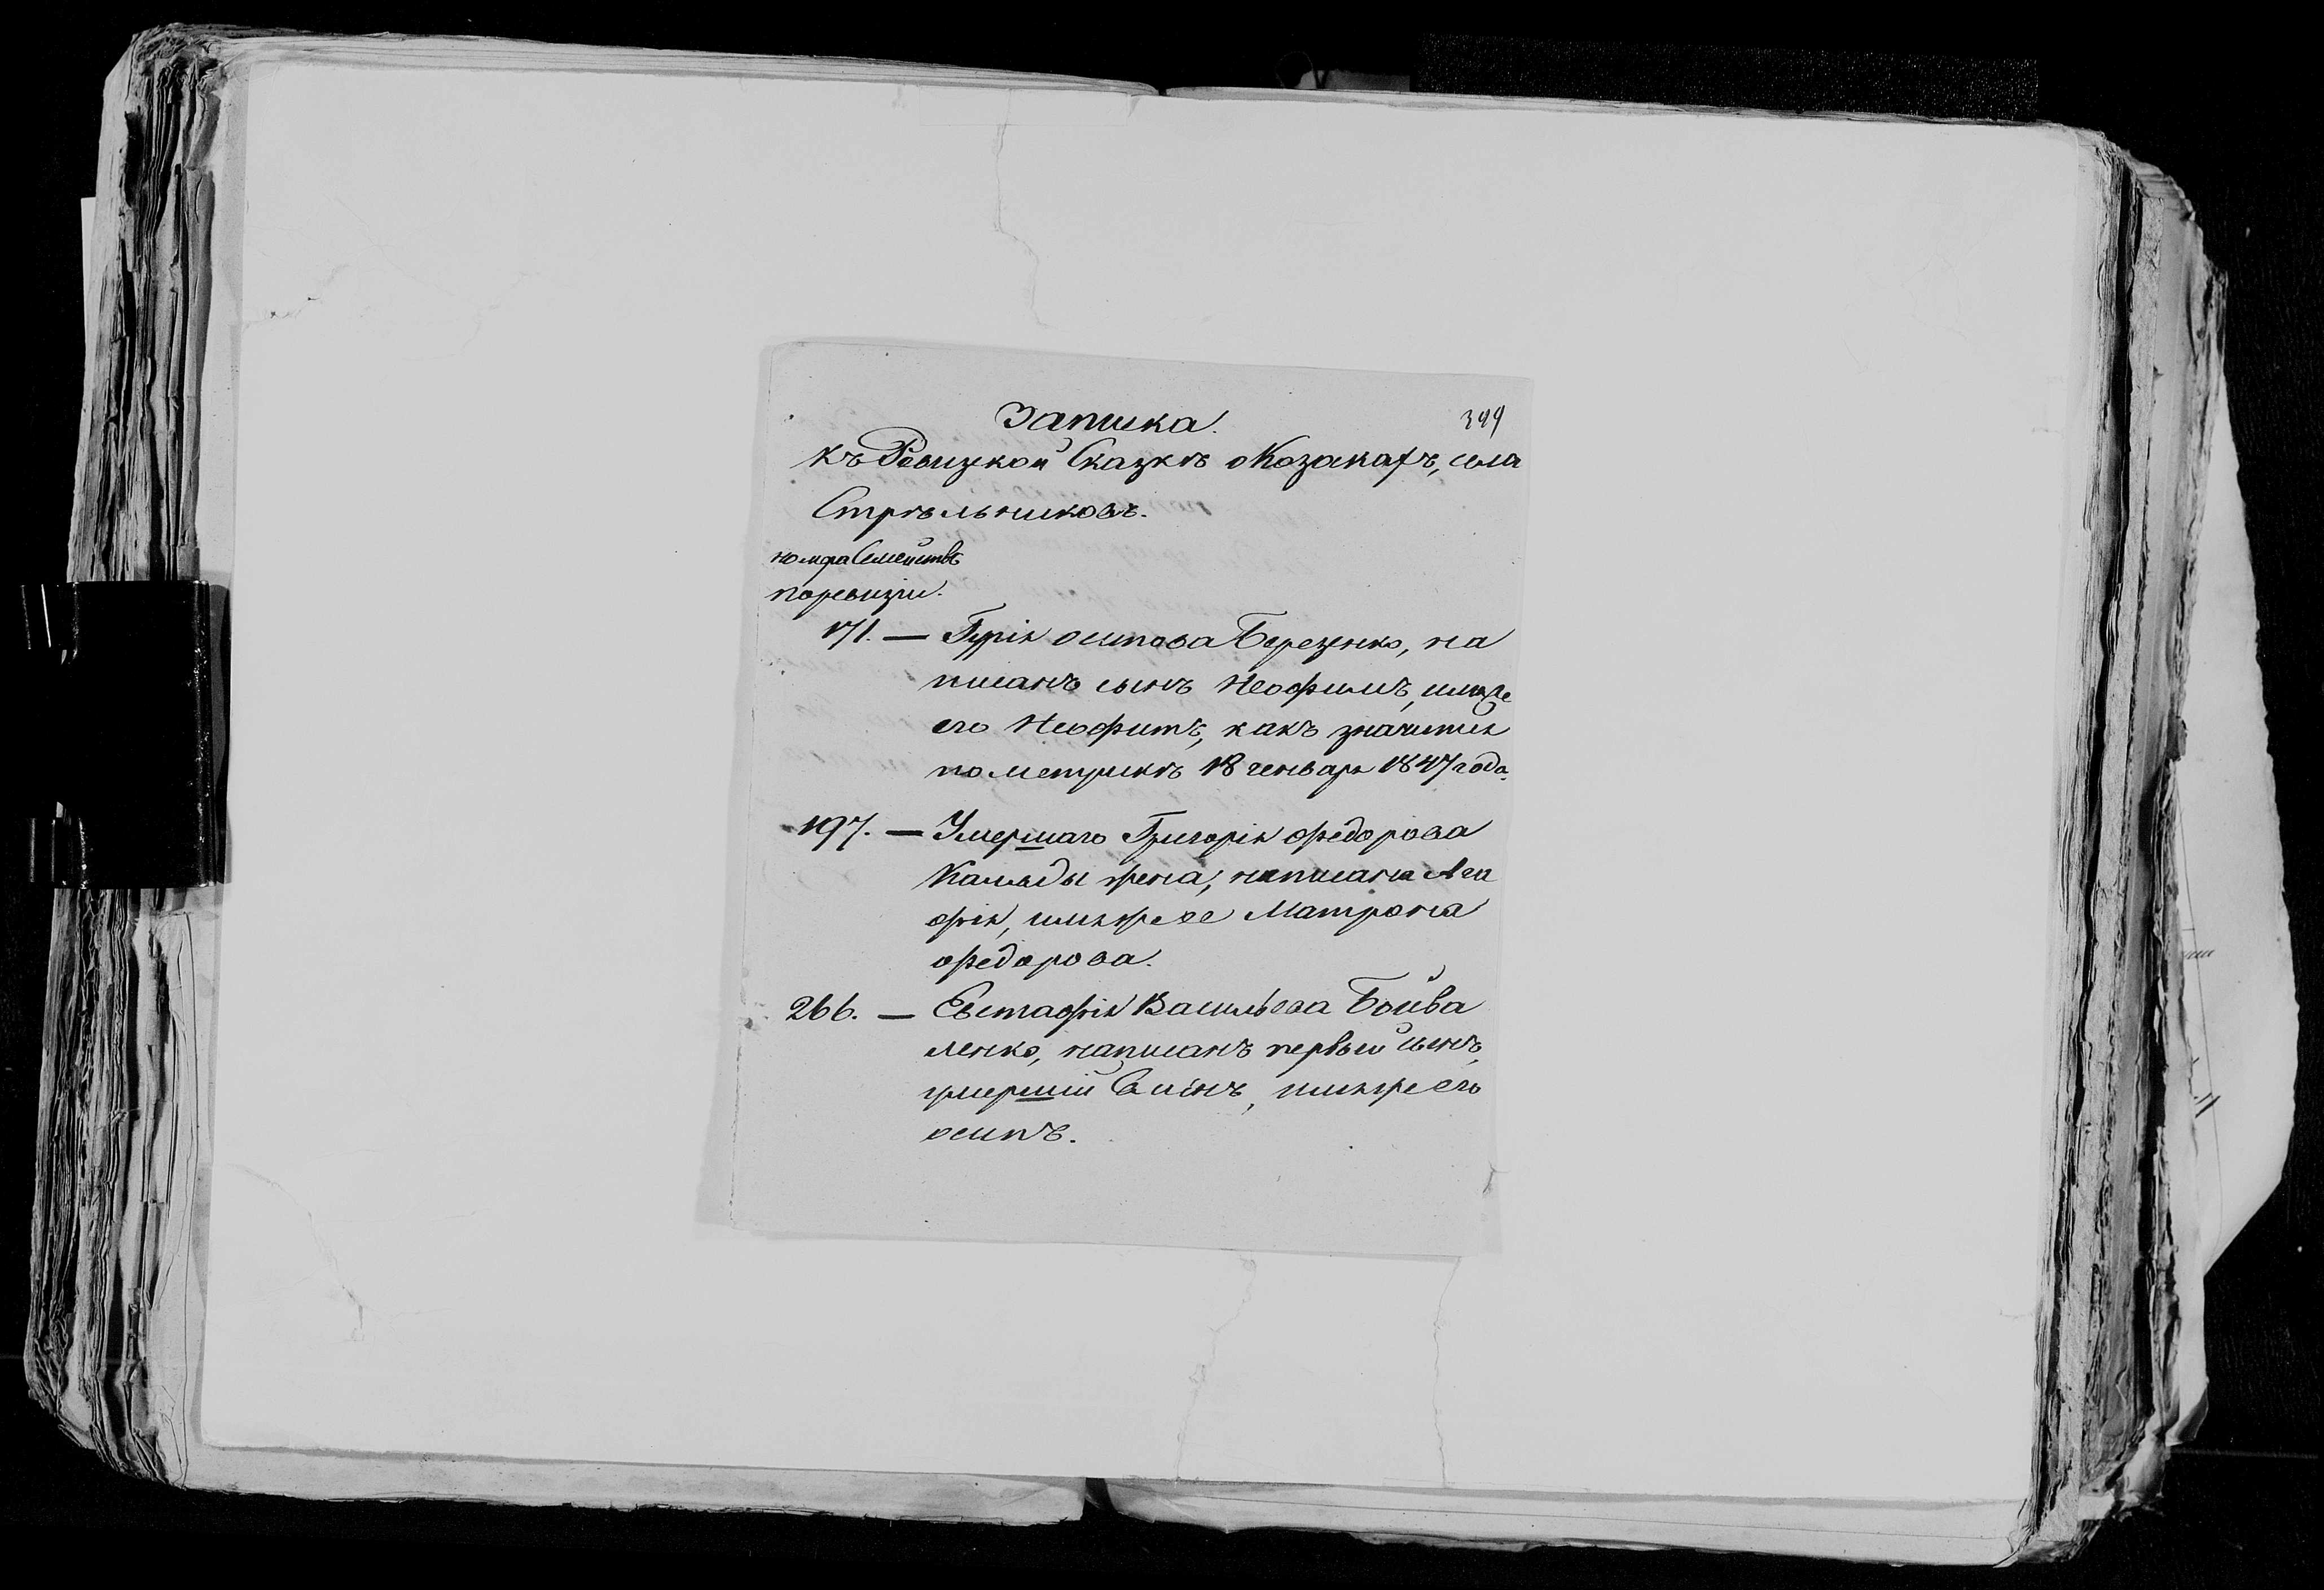 Записка.
399
къ Ревизкой Сказкѣ о Козакахъ, села
Стрѣльниковъ.
номера Семействъ
по ревизіи.
171. — Гурія осипова Березенко, на
писанъ сынъ Неофилъ, имя же
его Неофитъ, какъ значится
по метрикѣ 18 генваря 1847 года.
197. — Умершаго Григорія федорова
Каляды жена, написана
фія, имя же ее Матрона
федорова.
266. — Евстафія Васильева Бойва
ленко, написанъ первый сынъ,
умершій имя же его
осипъ.